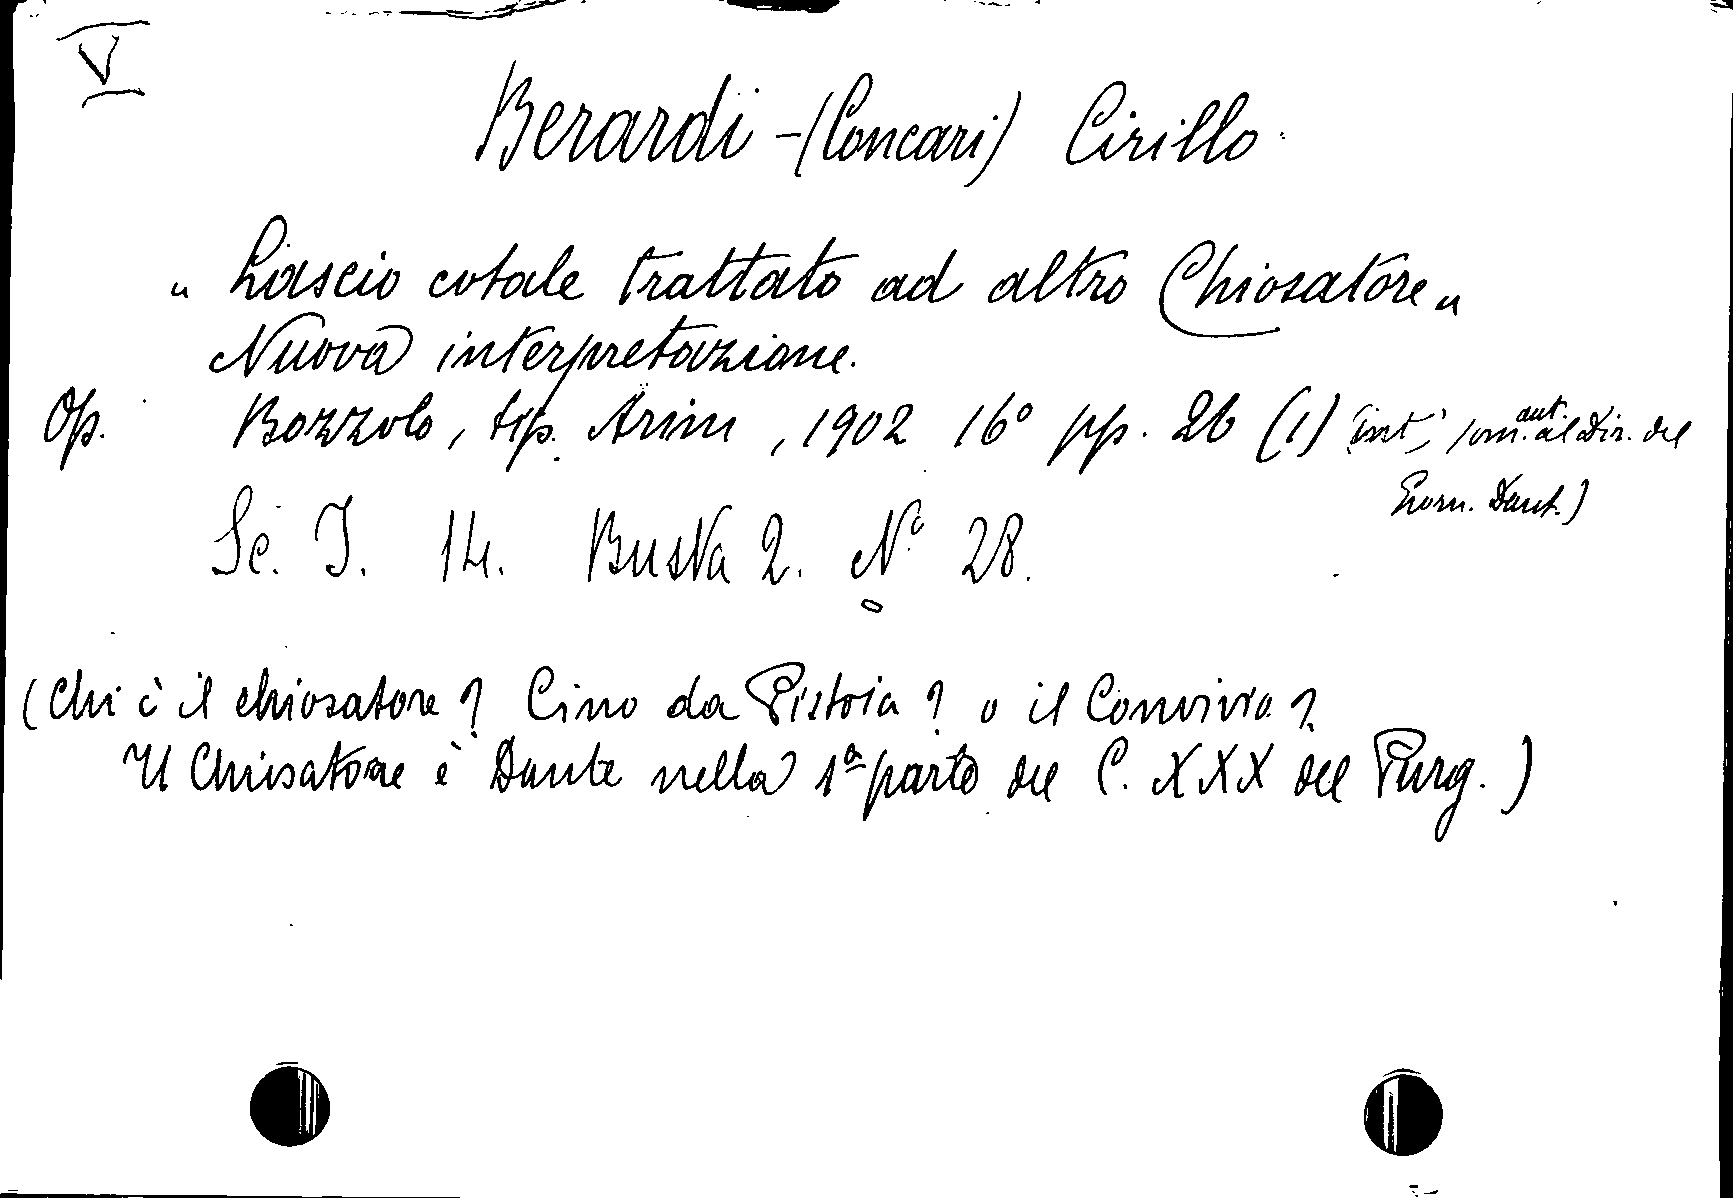 V
Berardi - (Concari) Cirillo
"Lascio cotale trattato ad altro Chiosatore"
Nuova interpretazione.
Op. Bozzolo, tip. Arini, 1902 16° pp. 26 (1) int, om. aut. al Dir. del
Giorn. Dant.)
Sc. I. 14. Busta 2. N° 28.
(Chi è il chiosatore? Cino da Pistoia? o il Convivio?
Il Chiosatore è Dante nella 1ª parte del C. XXX del Purg.)